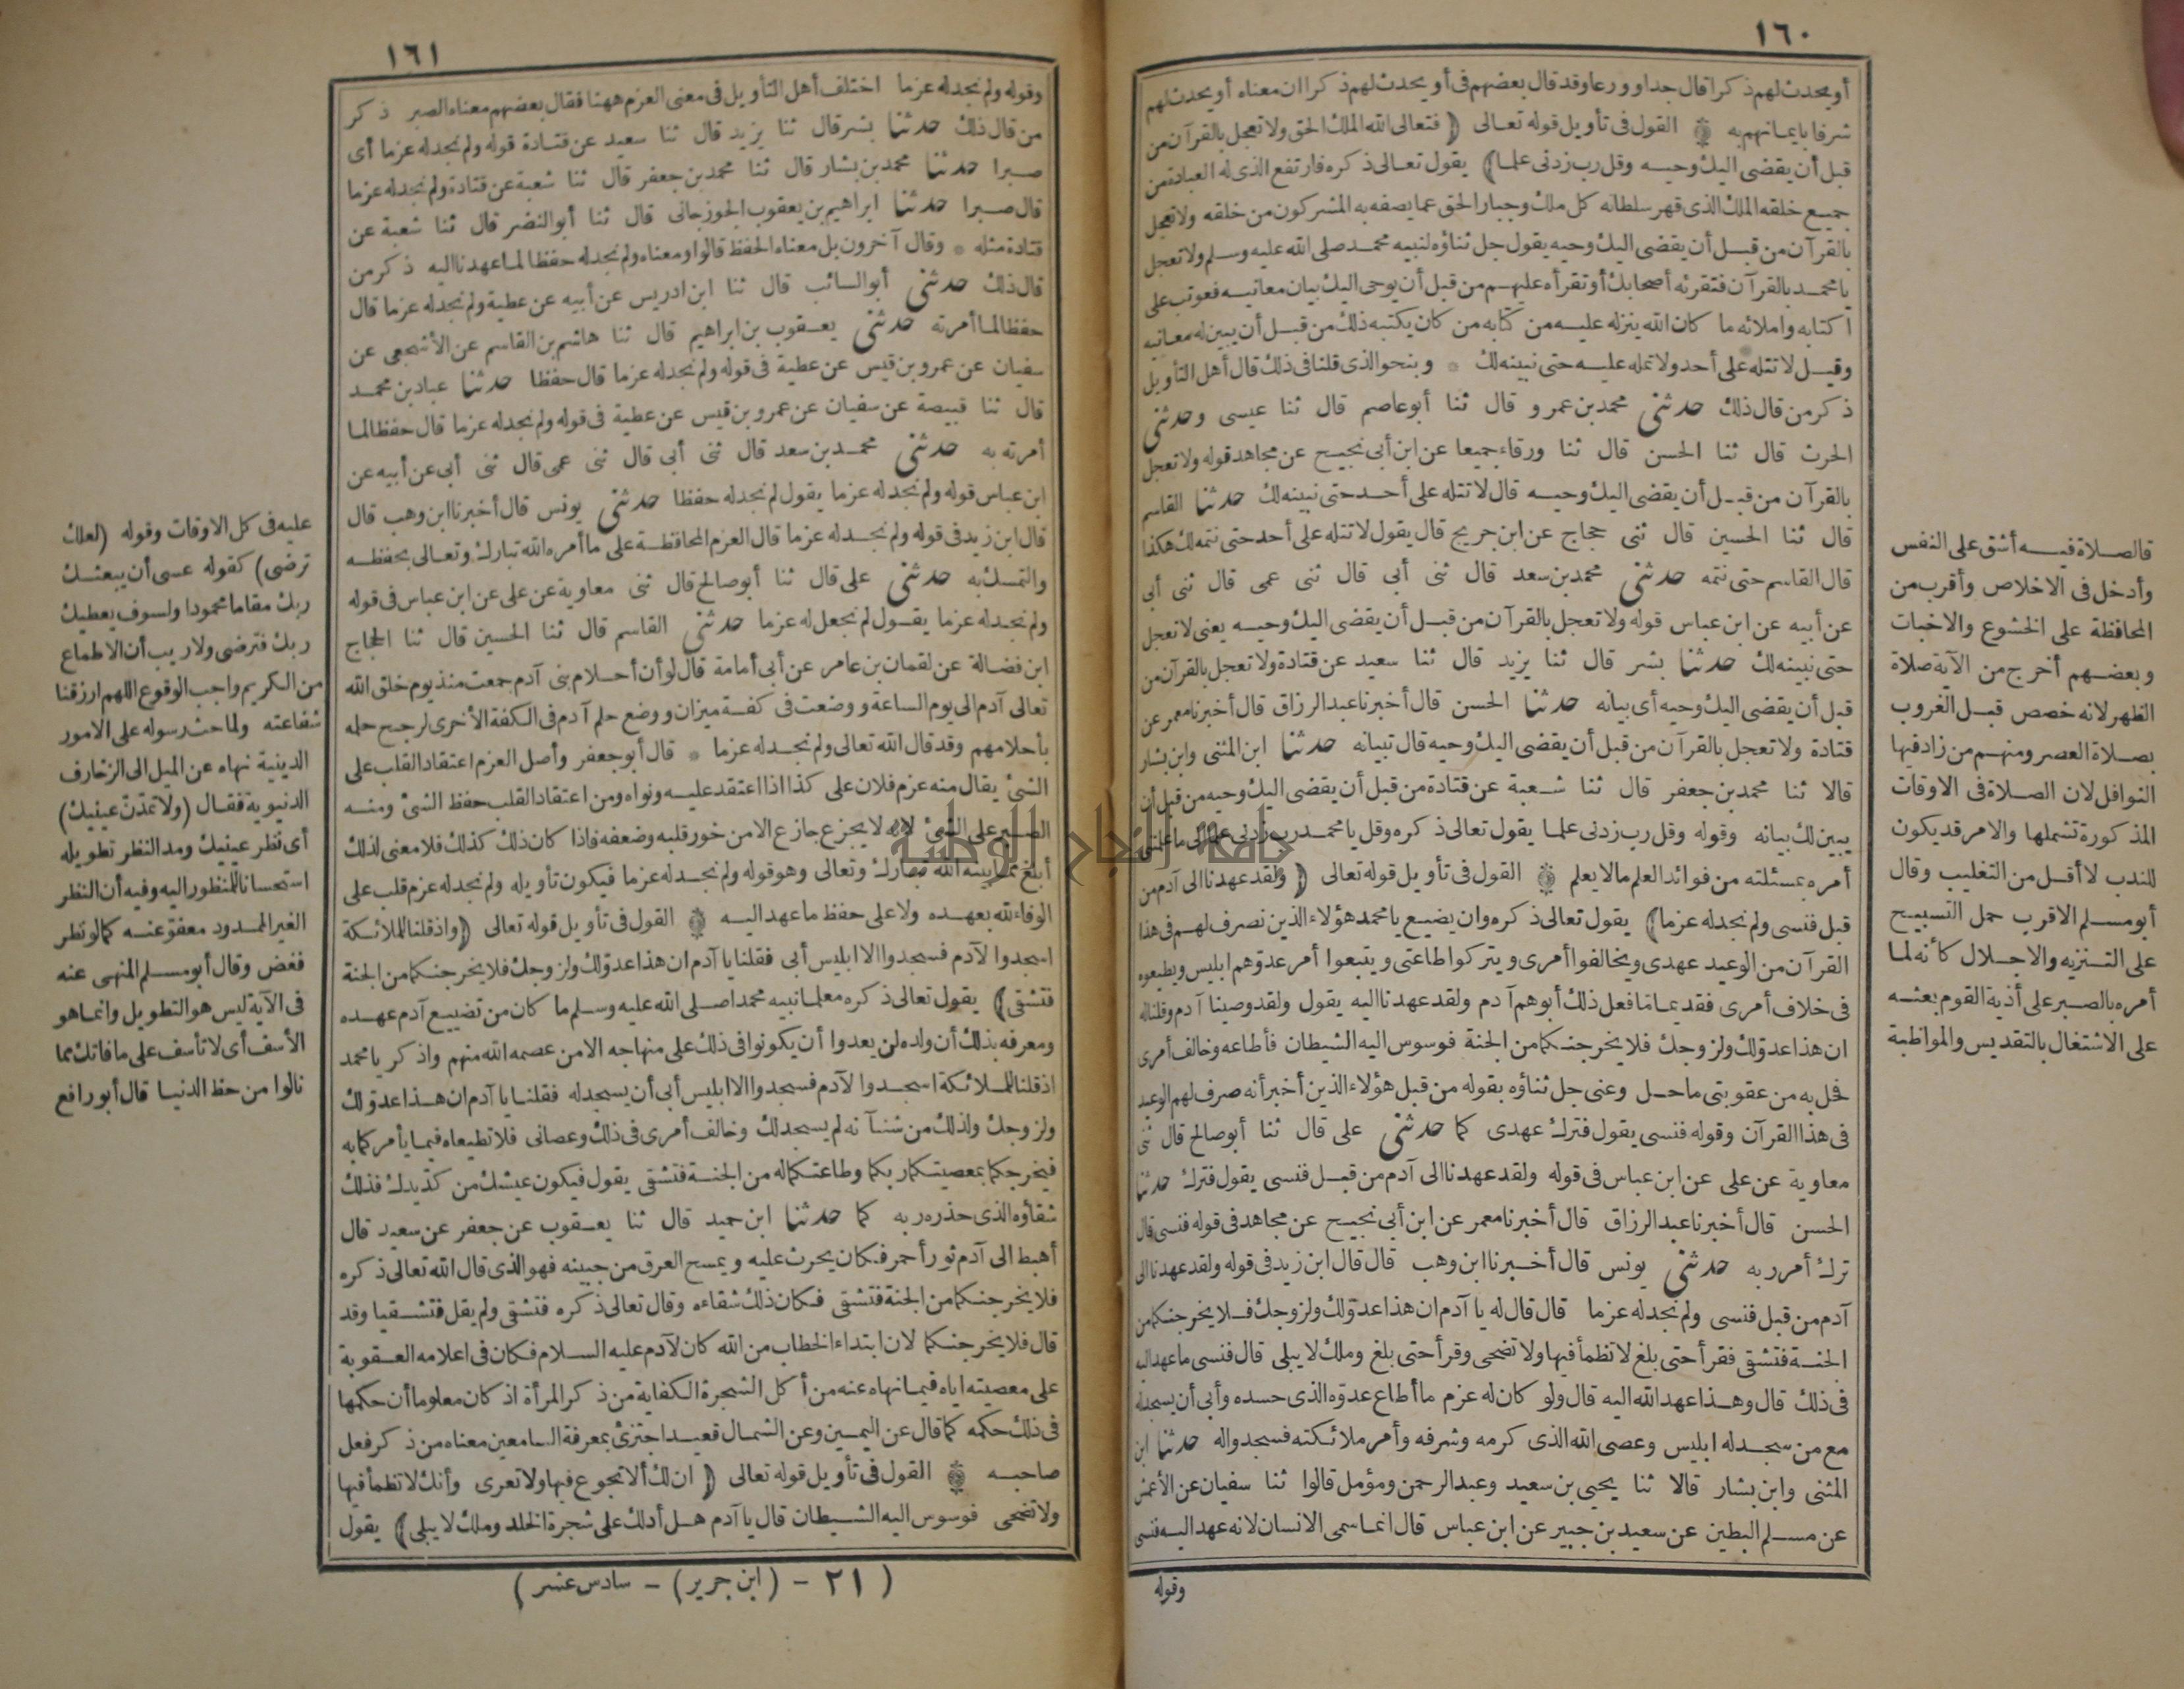 ١٦٠
أو يحدث لهم ذكرا قال جدا وورعا وقد قال بعضهم في أو يحدث لهم ذكرا ان معناه أو يحدث لهم
شرفا بايمانهم به القول في تأويل قوله تعالى (فتعالى الله الملك الحق ولا تعجل بالقرآن من
قبل أن يقضى اليك وحيه وقل رب زدني علما) يقول تعالى ذكره فارتفع الذي له العبادة من
جميع خلقه الملك الذي قهر سلطانه كل ملك وجبار الحق عما يصفه به المشركون من خلقه ولا تعجل
بالقرآن من قبل أن يقضى اليك وحيه يقول جل ثناؤه لنبيه محمد صلى الله عليه وسلم ولا تعجل
يا محمد بالقرآن فتقرئه أصحابك أو تقرأه عليهم من قبل أن يوحى اليك بيان معانيه فعوتب على
اكتابه واملائه ما كان الله ينزله عليه من كتابه من كان يكتبه ذلك من قبل أن يبين له معانيه
وقيل لا تتله على أحد ولا تمله عليه حتى نبينه لك * وبنحو الذي قلنا في ذلك قال أهل التأويل
ذكر من قال ذلك حدثني محمد بن عمرو قال ثنا أبو عاصم قال ثنا عيسى وحدثني
الحرث قال ثنا الحسن قال ثنا ورقاء جميعا عن ابن أبي نجيح عن مجاهد قوله ولا تعجل
بالقرآن من قبل أن يقضى اليك وحيه قال لا تتله على أحد حتى نبينه لك حدثنا القاسم
قال ثنا الحسين قال ثني حجاج عن ابن جريج قال يقول لا تتله على أحد حتى نتمه لك هكذا
قال القاسم حتى نتمه حدثني محمد بن سعد قال ثني أبي قال ثني عمي قال ثني أبي
عن أبيه عن ابن عباس قوله ولا تعجل بالقرآن من قبل أن يقضى اليك وحيه يعنى لا تعجل
حتى نبينه لك حدثنا بشر قال ثنا يزيد قال ثنا سعيد عن قتادة ولا تعجل بالقرآن من
قبل أن يقضى اليك وحيه أي بيانه حدثنا الحسن قال أخبرنا عبد الرزاق قال أخبرنا معمر عن
قتادة ولا تعجل بالقرآن من قبل أن يقضى اليك وحيه قال تبيانه حدثنا ابن المثنى وابن بشار
قالا ثنا محمد بن جعفر قال ثنا شعبة عن قتادة من قبل أن يقضى اليك وحيه من قبل أن
يبين لك بيانه وقوله وقل رب زدني علما يقول تعالى ذكره وقل يا محمد رب زدني علما الى ما علمتني
أمره بمسئلته من فوائد العلم ما لا يعلم القول في تأويل قوله تعالى (ولقد عهدنا الى آدم من
قبل فنسى ولم نجد له عزما) يقول تعالى ذكره وان يضيع يا محمد هؤلاء الذين نصرف لهم في هذا
القرآن من الوعيد عهدي ويخالفوا أمري ويتركوا طاعتي ويتبعوا أمر عدوهم ابليس ويطيعوه
في خلاف أمري فقديما ما فعل ذلك أبوهم آدم ولقد عهدنا اليه يقول ولقد وصينا آدم وقلنا له
ان هذا عدو لك ولزوجك فلا يخرجنكما من الجنة فوسوس اليه الشيطان فأطاعه وخالف أمري
فحل به من عقوبتي ما حل وعنى جل ثناؤه بقوله من قبل هؤلاء الذين أخبر أنه صرف لهم الوعيد
في هذا القرآن وقوله فنسى يقول فترك عهدي كما حدثني على قال ثنا أبو صالح قال ثني
معاوية عن على عن ابن عباس في قوله ولقد عهدنا الى آدم من قبل فنسى يقول فترك حدثنا
الحسن قال أخبرنا عبد الرزاق قال أخبرنا معمر عن ابن أبي نجيح عن مجاهد في قوله فنسى قال
ترك أمر ربه حدثني يونس قال أخبرنا ابن وهب قال قال ابن زيد في قوله ولقد عهدنا الى
آدم من قبل فنسى ولم نجد له عزما قال قال له يا آدم ان هذا عدو لك ولزوجك فلا يخرجنكما من
الجنة فتشقى فقرأ حتى بلغ لا تظمأ فيها ولا تضحى وقرأ حتى بلغ وملك لا يبلى قال فنسى ما عهد اليه
في ذلك قال وهذا عهد الله اليه قال ولو كان له عزم ما أطاع عدوه الذي حسده وأبى أن يسجد له
مع من سجد له ابليس وعصى الله الذي كرمه وشرفه وأمر ملائكته فسجدوا له حدثنا ابن
المثنى وابن بشار قالا ثنا يحيى بن سعيد وعبد الرحمن ومؤمل قالوا ثنا سفيان عن الأعمش
عن مسلم البطين عن سعيد بن جبير عن ابن عباس قال انما سمى الانسان لانه عهد اليه فنسى
وقوله
فالصلاة فيه أشق على النفس
وأدخل في الاخلاص وأقرب من
المحافظة على الخشوع والاخبات
وبعضهم أخرج من الآية صلاة
الظهر لانه خصص قبل الغروب
بصلاة العصر ومنهم من زاد فيها
النوافل لان الصلاة في الاوقات
المذكورة تشملها والامر قد يكون
للندب لا أقل من التغليب وقال
أبو مسلم الاقرب حمل التسبيح
على التنزيه والاجلال كأنه لما
أمره بالصبر على أذية القوم بعثه
على الاشتغال بالتقديس والمواظبة
١٦١
وقوله ولم نجد له عزما اختلف أهل التأويل في معنى العزم ههنا فقال بعضهم معناه الصبر ذكر
من قال ذلك حدثنا بشر قال ثنا يزيد قال ثنا سعيد عن قتادة قوله ولم نجد له عزما أي
صبرا حدثنا محمد بن بشار قال ثنا محمد بن جعفر قال ثنا شعبة عن قتادة ولم نجد له عزما
قال صبرا حدثنا ابراهيم بن يعقوب الجوزجاني قال ثنا أبو النضر قال ثنا شعبة عن
قتادة مثله * وقال آخرون بل معناه الحفظ قالوا ومعناه ولم نجد له حفظا لما عهدنا اليه ذكر من
قال ذلك حدثني أبو السائب قال ثنا ابن ادريس عن أبيه عن عطية ولم نجد له عزما قال
حفظا لما أمرته حدثني يعقوب بن ابراهيم قال ثنا هاشم بن القاسم عن الأشجعي عن
سفيان عن عمرو بن قيس عن عطية في قوله ولم نجد له عزما قال حفظا حدثنا عباد بن محمد
قال ثنا قبيصة عن سفيان عن عمرو بن قيس عن عطية في قوله ولم نجد له عزما قال حفظا لما
أمرته به حدثني محمد بن سعد قال ثني أبي قال ثني عمي قال ثني أبي عن أبيه عن
ابن عباس قوله ولم نجد له عزما يقول لم نجد له حفظا حدثني يونس قال أخبرنا ابن وهب قال
قال ابن زيد في قوله ولم نجد له عزما قال العزم المحافظة على ما أمره الله تبارك وتعالى بحفظه
والتمسك به حدثني على قال ثنا أبو صالح قال ثني معاوية عن على عن ابن عباس في قوله
ولم نجد له عزما يقول لم نجعل له عزما حدثني القاسم قال ثنا الحسين قال ثنا الحجاج
ابن فضالة عن لقمان بن عامر عن أبي أمامة قال لو أن أحلام بني آدم جمعت منذ يوم خلق الله
تعالى آدم الى يوم الساعة ووضعت في كفة ميزان ووضع حلم آدم في الكفة الأخرى لرجح حلمه
بأحلامهم وقد قال الله تعالى ولم نجد له عزما * قال أبو جعفر وأصل العزم اعتقاد القلب على
الشئ يقال منه عزم فلان على كذا اذا اعتقد عليه ونواه ومن اعتقاد القلب حفظ الشئ ومنه
الصبر على الشئ لانه لا يجزع جازع الا من خور قلبه وضعفه فاذا كان ذلك كذلك فلا معنى لذلك
أبلغ مما بينه الله تبارك وتعالى وهو قوله ولم نجد له عزما فيكون تأويله ولم نجد له عزم قلب على
الوفاء لله بعهده ولا على حفظ ما عهد اليه القول في تأويل قوله تعالى (واذ قلنا للملائكة
اسجدوا لآدم فسجدوا الا ابليس أبى فقلنا يا آدم ان هذا عدو لك ولزوجك فلا يخرجنكما من الجنة
فتشقى) يقول تعالى ذكره معلما نبيه محمدا صلى الله عليه وسلم ما كان من تضييع آدم عهده
ومعرفه بذلك أن ولده لن يعدوا أن يكونوا في ذلك على منهاجه الا من عصمه الله منهم واذكر يا محمد
اذ قلنا للملائكة اسجدوا لآدم فسجدوا الا ابليس أبى أن يسجد له فقلنا يا آدم ان هذا عدو لك
ولزوجك ولذلك من شنآنه لم يسجد لك وخالف أمري في ذلك وعصاني فلا تطيعاه فيما يأمركما به
فيخرجكما بمعصيتكما ربكما وطاعتكما له من الجنة فتشقى يقول فيكون عيشك من كد يدك فذلك
شقاؤه الذي حذره ربه كما حدثنا ابن حميد قال ثنا يعقوب عن جعفر عن سعيد قال
أهبط الى آدم ثور أحمر فكان يحرث عليه ويمسح العرق من جبينه فهو الذي قال الله تعالى ذكره
فلا يخرجنكما من الجنة فتشقى فكان ذلك شقاءه وقال تعالى ذكره فتشقى ولم يقل فتشقيا وقد
قال فلا يخرجنكما لان ابتداء الخطاب من الله كان لآدم عليه السلام فكان في اعلامه العقوبة
على معصيته اياه فيما نهاه عنه من أكل الشجرة الكفاية من ذكر المرأة اذ كان معلوما أن حكمها
في ذلك حكمه كما قال عن اليمين وعن الشمال قعيد اجتزئ بمعرفة السامعين معناه من ذكر فعل
صاحبه القول في تأويل قوله تعالى (ان لك ألا تجوع فيها ولا تعرى وأنك لا تظمأ فيها
ولا تضحى فوسوس اليه الشيطان قال يا آدم هل أدلك على شجرة الخلد وملك لا يبلى) يقول
(٢١ - (ابن جرير) - سادس عشر)
عليه في كل الاوقات وقوله (لعلك
ترضى) كقوله عسى أن يبعثك
ربك مقاما محمودا ولسوف يعطيك
ربك فترضى ولا ريب أن الاطماع
من الكريم واجب الوقوع اللهم ارزقنا
شفاعته ولما حث رسوله على الامور
الدينية نهاه عن الميل الى الزخارف
الدنيوية فقال (ولا تمدن عينيك)
أي نظر عينيك ومد النظر تطويله
استحسانا للمنظور اليه وفيه أن النظر
الغير الممدود معفو عنه كما لو نظر
فغض وقال أبو مسلم المنهى عنه
في الآية ليس هو التطويل وانما هو
الأسف أي لا تأسف على ما فاتك مما
نالوا من حظ الدنيا قال أبو رافع
جامعة النجاح الوطنية